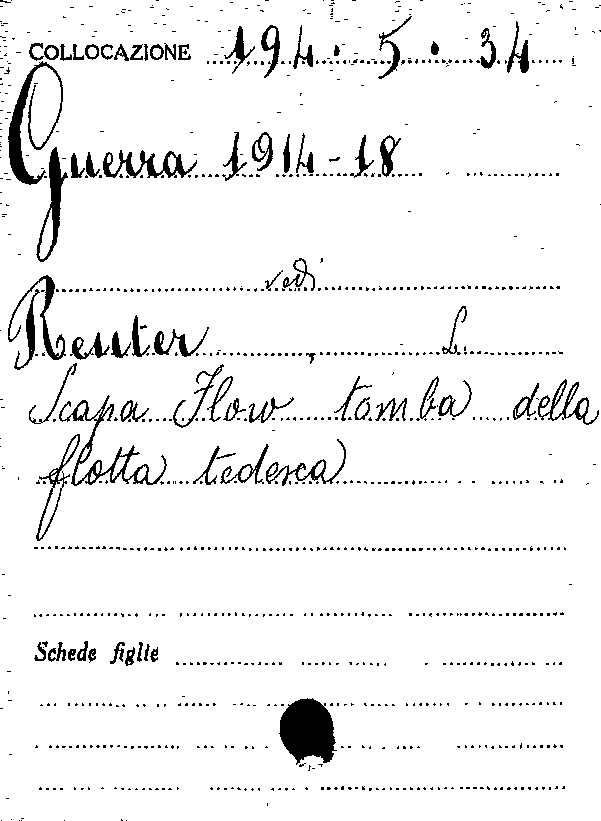 COLLOCAZIONE 194.5.34
Guerra 1914-18
vedi
Reuter, L.
Scapa Flow tomba della
flotta tedesca
Schede figlie